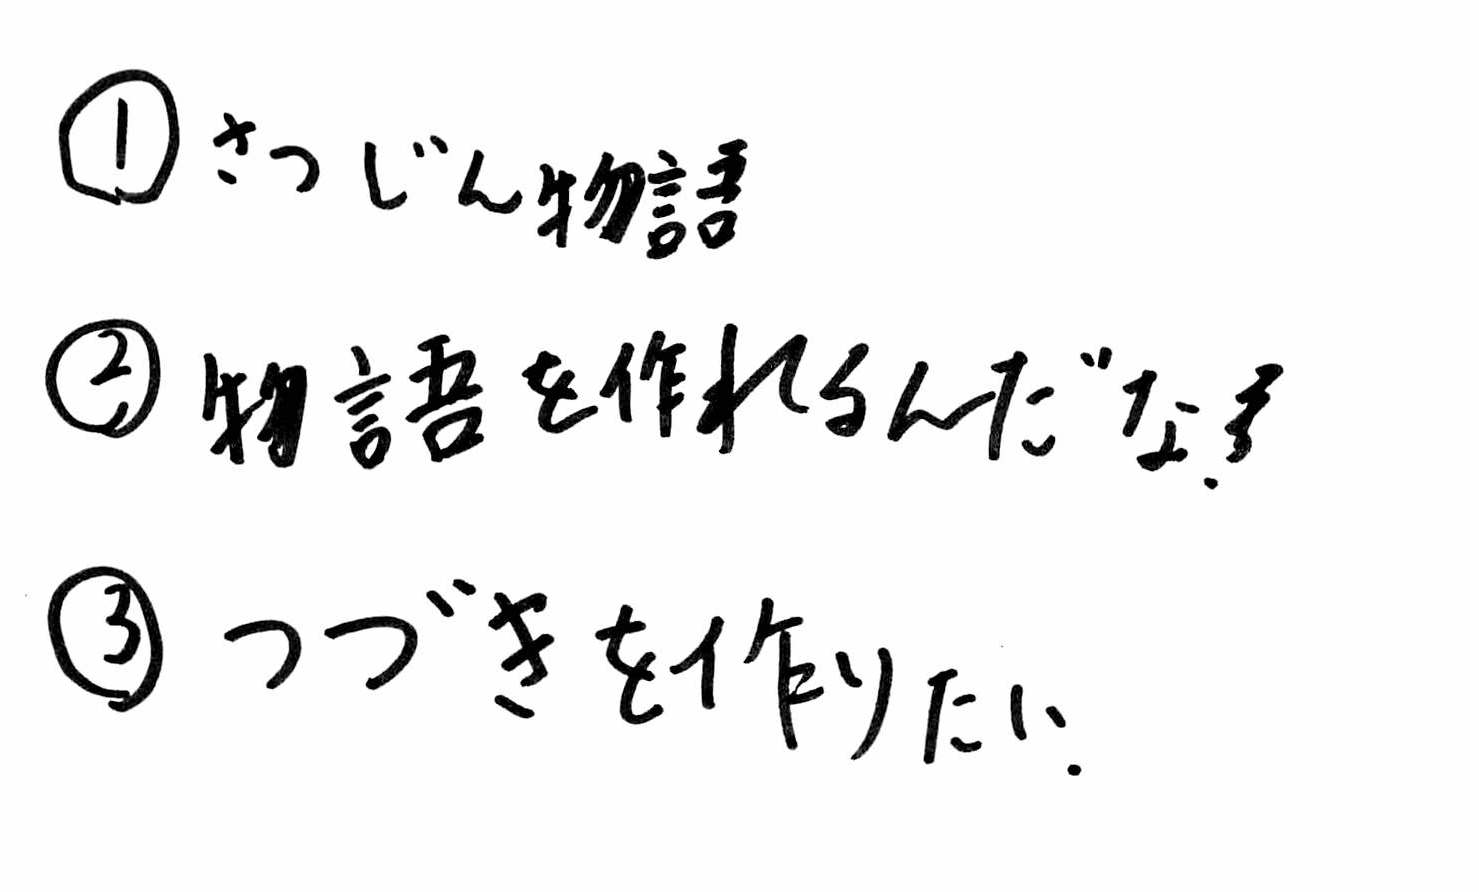 ① さつじん物語
② 物語を作れるんだな。
③ つづきを作りたい.